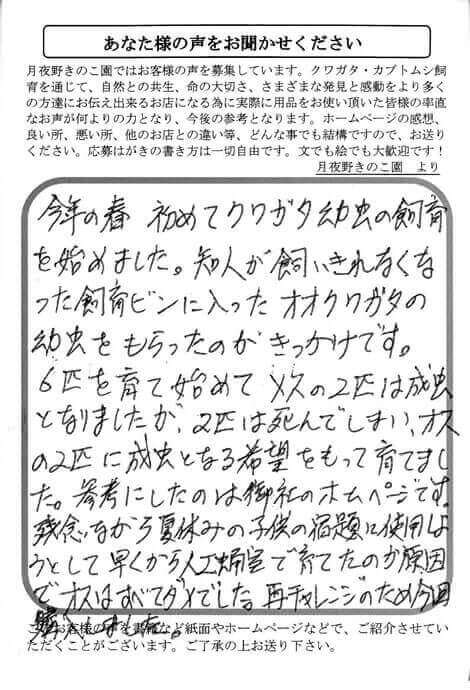 あなた様の声をお聞かせください
月夜野きのこ園ではお客様の声を募集しています。クワガタ・カブトムシ飼
育を通じて、自然との共生、命の大切さ、さまざまな発見と感動をより多く
の方達にお伝え出来るお店になる為に実際に用品をお使い頂いた皆様の率直
なお声が何よりの力となり、今後の参考となります。ホームページの感想、
良い所、悪い所、他のお店との違い等、どんな事でも結構ですので、お送り
ください。応募はがきの書き方は一切自由です。文でも絵でも大歓迎です！
月夜野きのこ園 より
今年の春 初めてクワガタ幼虫の飼育
を始めました。知人が飼いきれなくな
った飼育ビンに入ったオオクワガタの
幼虫をもらったのがきっかけです。
6匹を育て始めてメスの2匹は成虫
となりましたが、2匹は死んでしまい、オス
の2匹に成虫となる希望をもって育てまし
た。参考にしたのは御社のホームページです。
残念ながら夏休みの子供の宿題に使用しよ
うとして早くから人工蛹室で育てたのが原因
でオスはすべてダメでした。再チャレンジのため今回
購入しました。
このお客様の声を書籍など紙面やホームページなどで、ご紹介させてい
ただくことがございます。ご了承の上お送り下さい。